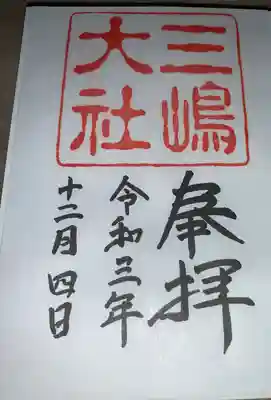 三嶋
大社
奉拝
令和三年
十二月四日